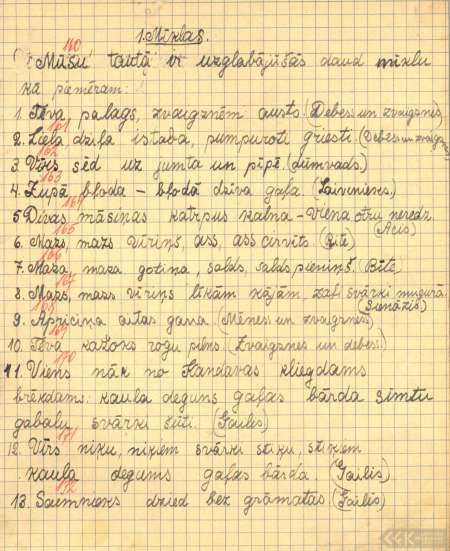 1. Mīklas.
160
Mūsu tautā ir uzglabājušās daud mīklu
kā piemēram:
1. Tēva palags, zvaigznēm austs. (Debess un zvaigznes)
161
2. Liela dziļa istaba, pumpuroti griesti. (Debess un zvaigznes)
162
3. Vīrs sēd uz jumta un pīpē. (Dūmvads.)
163
4. Zupā bļoda – bļodā dzīva gaļa. (Laivinieks.)
164
5 Divas māsiņas katrpus kalna – viena otru neredz.
(Acis)
165
6. Mazs, mazs vīriņš, ass, ass cirvīts. (Bite)
166
7. Maza, maza gotiņa, salds, salds pieniņš. (Bite)
167
8. Mazs, mazs vīriņš līkām kājām, zaļi svārki mugurā.
(Sienāzis)
168
9. Apriciņa aitas gana. (Mēness un zvaigznes)
169
10. Tēva kažoks rogu pilns. (Zvaigznes un debess.)
170
11. Viens nāk no Kandavas kliegdams
brēkdams: kaula deguns gaļas bārda simtu
gabalu svārki šūti. (Gailis)
171
12. Vīrs niķu, niķiem svārki stiķu, stiķiem
kaula deguns gaļas bārda. (Gailis)
172
13. Saimnieks dzied bez grāmatas (Gailis)